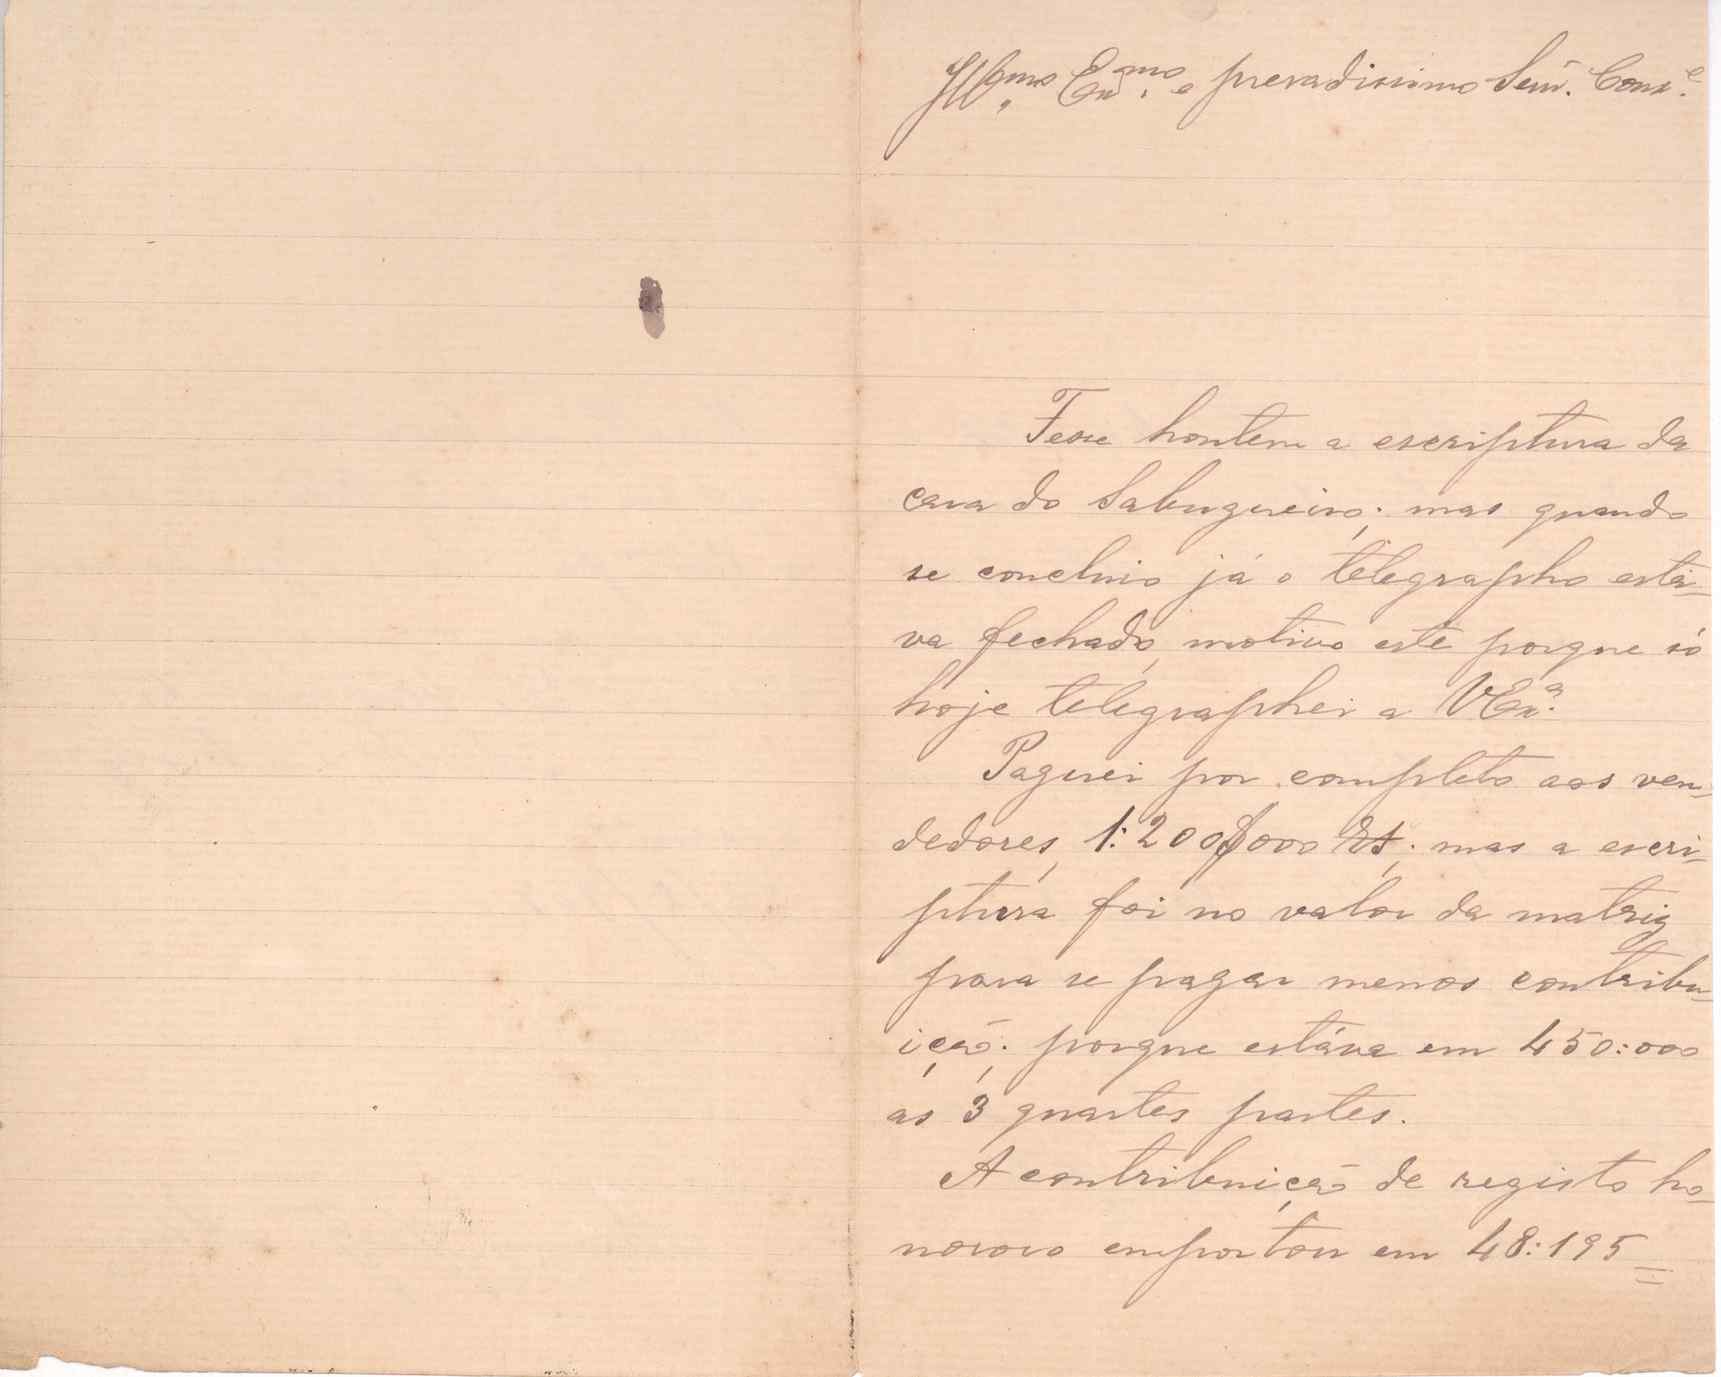 Ill.mo Ex.mo e presadissimo Senr. Cons.e
Fesse hontem a escriptura da
casa do Sabugueiro; mas quando
se concluio já o telegrapho está-
va fechado, motivo este porque só
hoje telegraphei a V Ex.a
Paguei por completo aos ven-
dedores, 1:200$000 Rs; mas a escri-
ptura foi no valor da matriz
para se pagar menos contribu-
ição; porque estáva em 450:000
as 3 quartes partes.
A contribuição de registo ho-
noroso emportou em 48:195